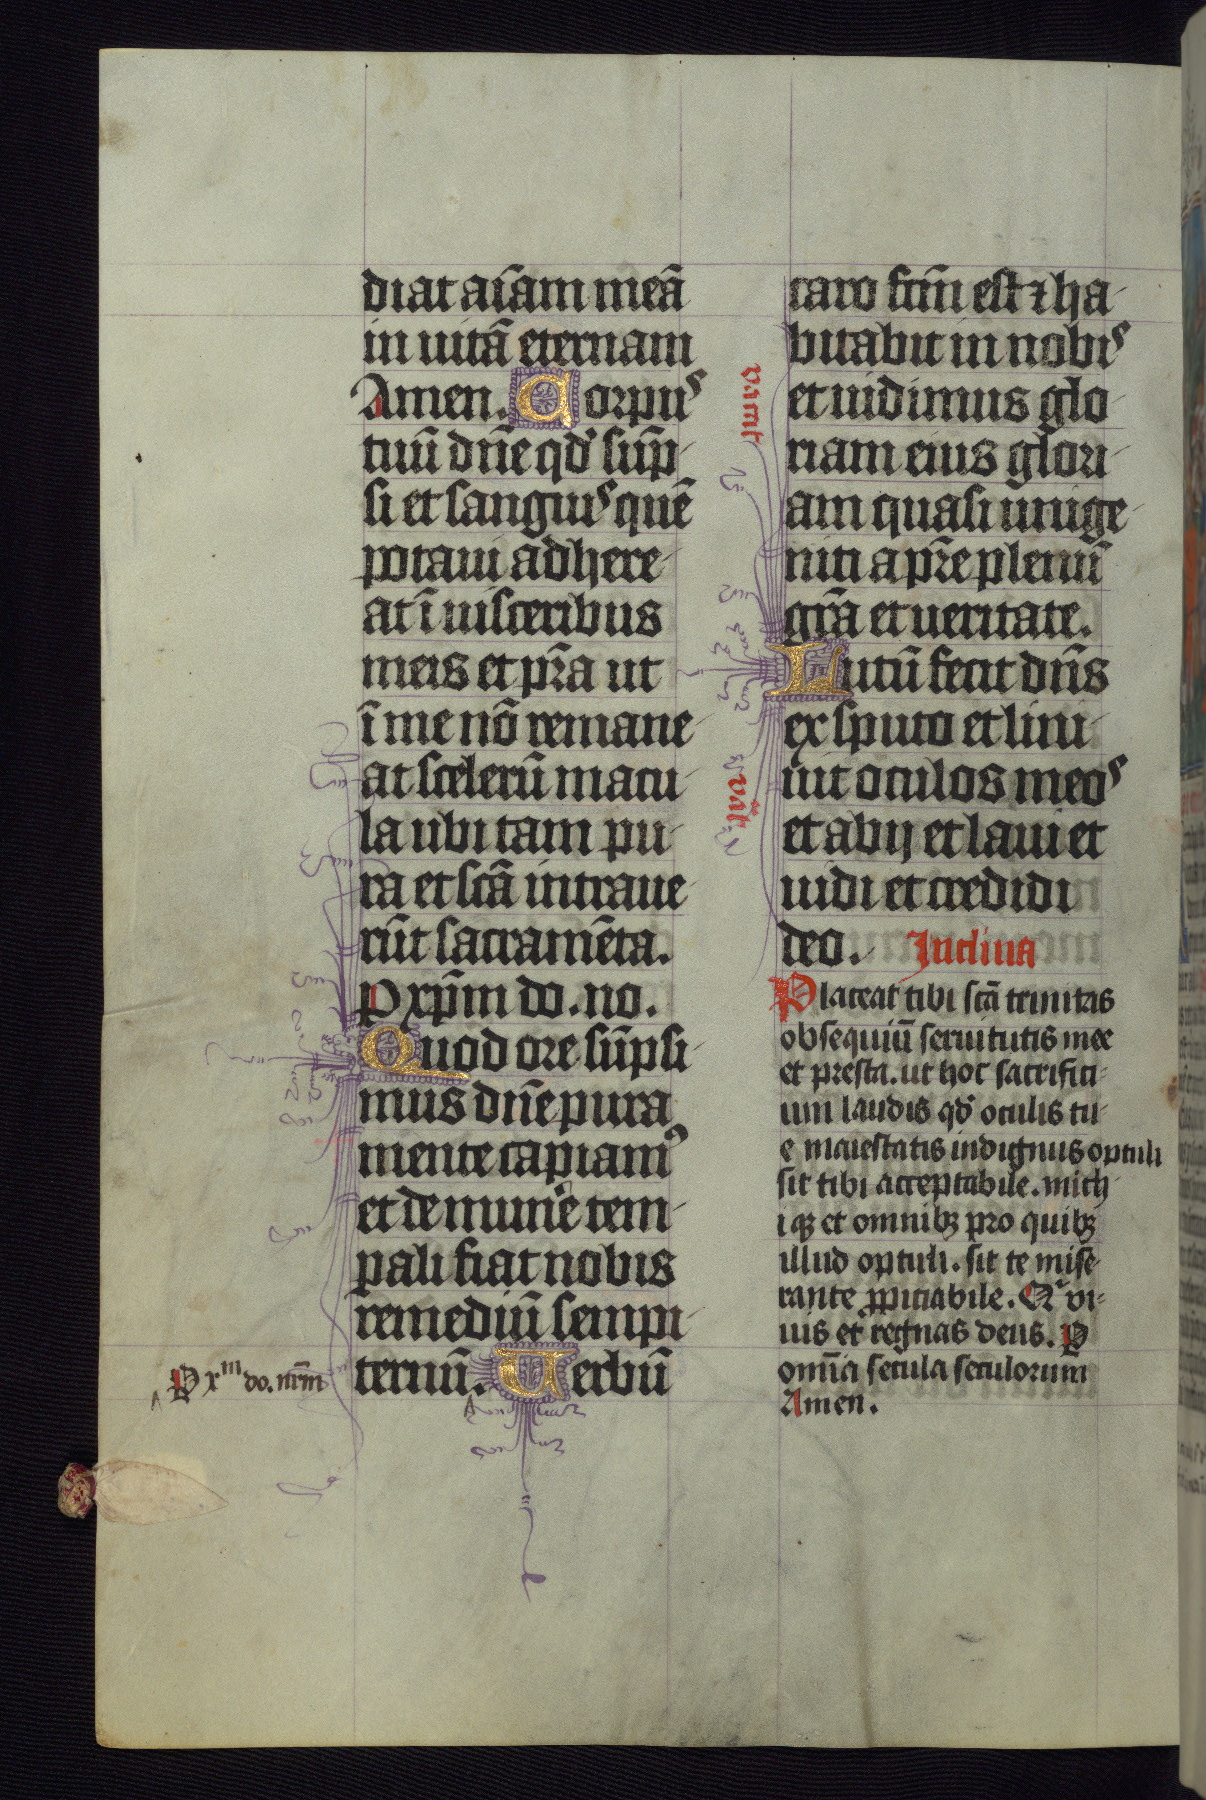 diat aĩam meã
in uitã eternam
Amen. Corpus
tuũ dñe qd̕ sũp-
si et sanguis quẽ
potaui adhere-
at ĩ uisceribus
meis et p̃ra ut
ĩ me nõ remane-
at scelerũ macu-
la ubi tam pu-
ra et scã intraue-
rũt sacramẽta.
P xp̃m do. no.
Quod ore sũpsi-
mus dñe pura
mente capiamꝰ
et de munẽ tem-
pali fiat nobis
remediũ sempi-
ternũ. Uerbũ
P xᵐ do. nr̃m
caro fcm̃ est ⁊ ha-
bitabit in nobis
et uidimus glo-
riam eius glori-
am quasi unige-
niti a pr̃e plenũ
gr̃a et ueritate.
Lutũ fecit dñs
ex sputo et lini-
uit oculos meos
et abij et laui et
uidi et credidi
deo. Inclina
Placeat tibi scã trinitas
obsequiũ seruitutis mee
et presta. ut hoc sacrifici-
um laudis qd̕ oculis tu-
e maiestatis indignus optuli
sit tibi acceptabile. mich-
iqꝫ et omnibꝫ pro quibꝫ
illud optuli. sit te mise-
rante ꝓpiciabile. Q̕ vi-
uis et regnas deus. P
omĩa secula seculorum
Amen.